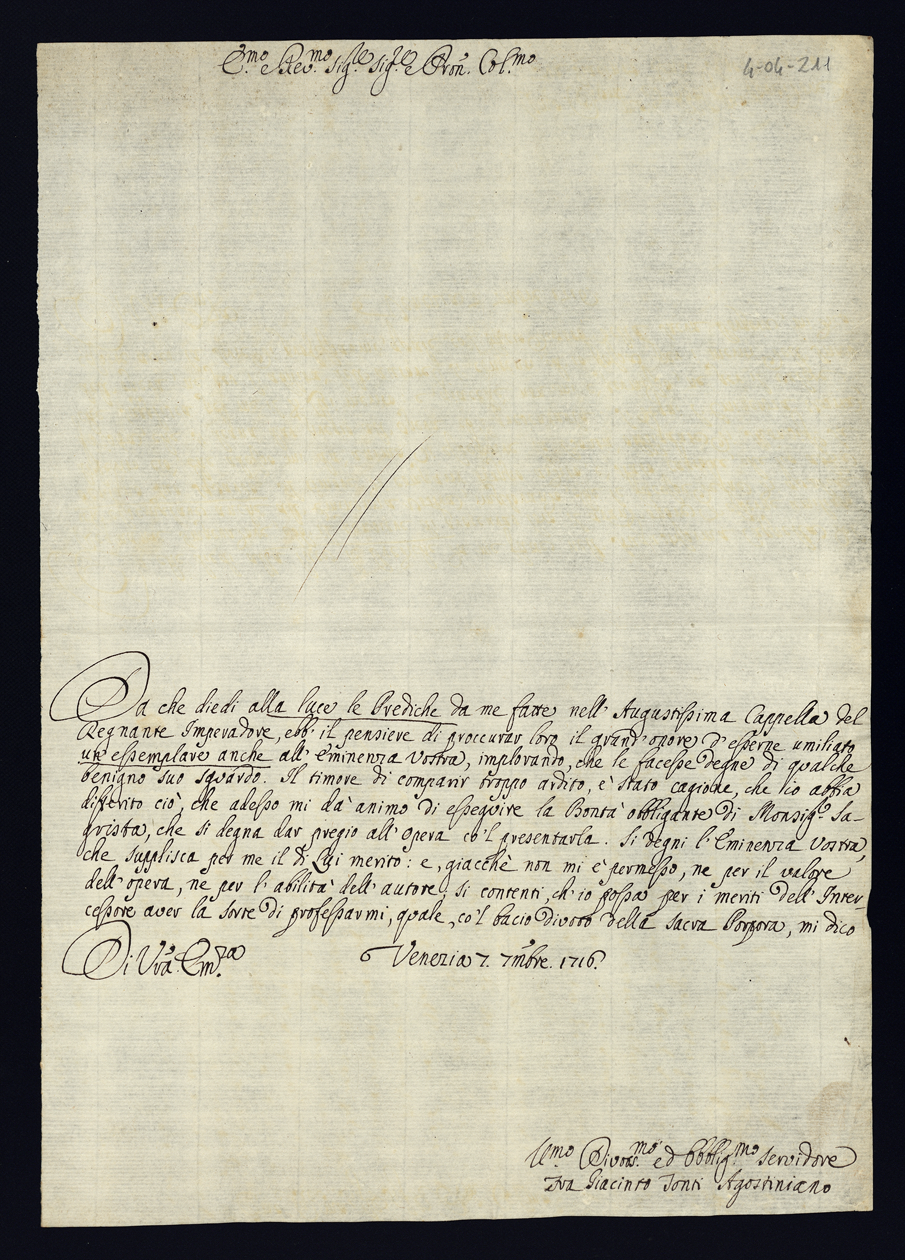 Em.mo e Rev.mo Sig.re Sig.re e Pron. Col.mo
4-04-211
Da che diedi alla luce le Prediche da me fatte nell' Augustissima Cappella del
Regnante Imperadore, ebbi il pensiere di proccurar loro il grand' onore d' esserne umiliato
un' essemplare anche all' Eminenza Vostra, implorando, che le facesse degne di qualche
benigno suo sguardo. Il timore di comparir troppo ardito, è stato cagione, che lio abbia
differito ciò, che adesso mi dà animo di esseguire la Bontà obbligante di Monsig.r Sa-
grista, che si degna dar pregio all' opera co'l presentarla. Si degni l' Eminenza Vostra,
che supplisca per me il di Lui merito: e, giacchè non mi è permesso, ne per il valore
dell' opera, ne per l' abilità dell' autore, si contenti, ch' io possa per i meriti dell' Inter-
cessore aver la sorte di professarmi, quale, co'l bacio divoto della Sacra Porpora, mi dico
Di Vrã Em.za
Venezia 7. 7mbre. 1716.
Um̃o Divotis.mo ed Obblig.mo Servidore
Fra Giacinto Tonti Agostiniano